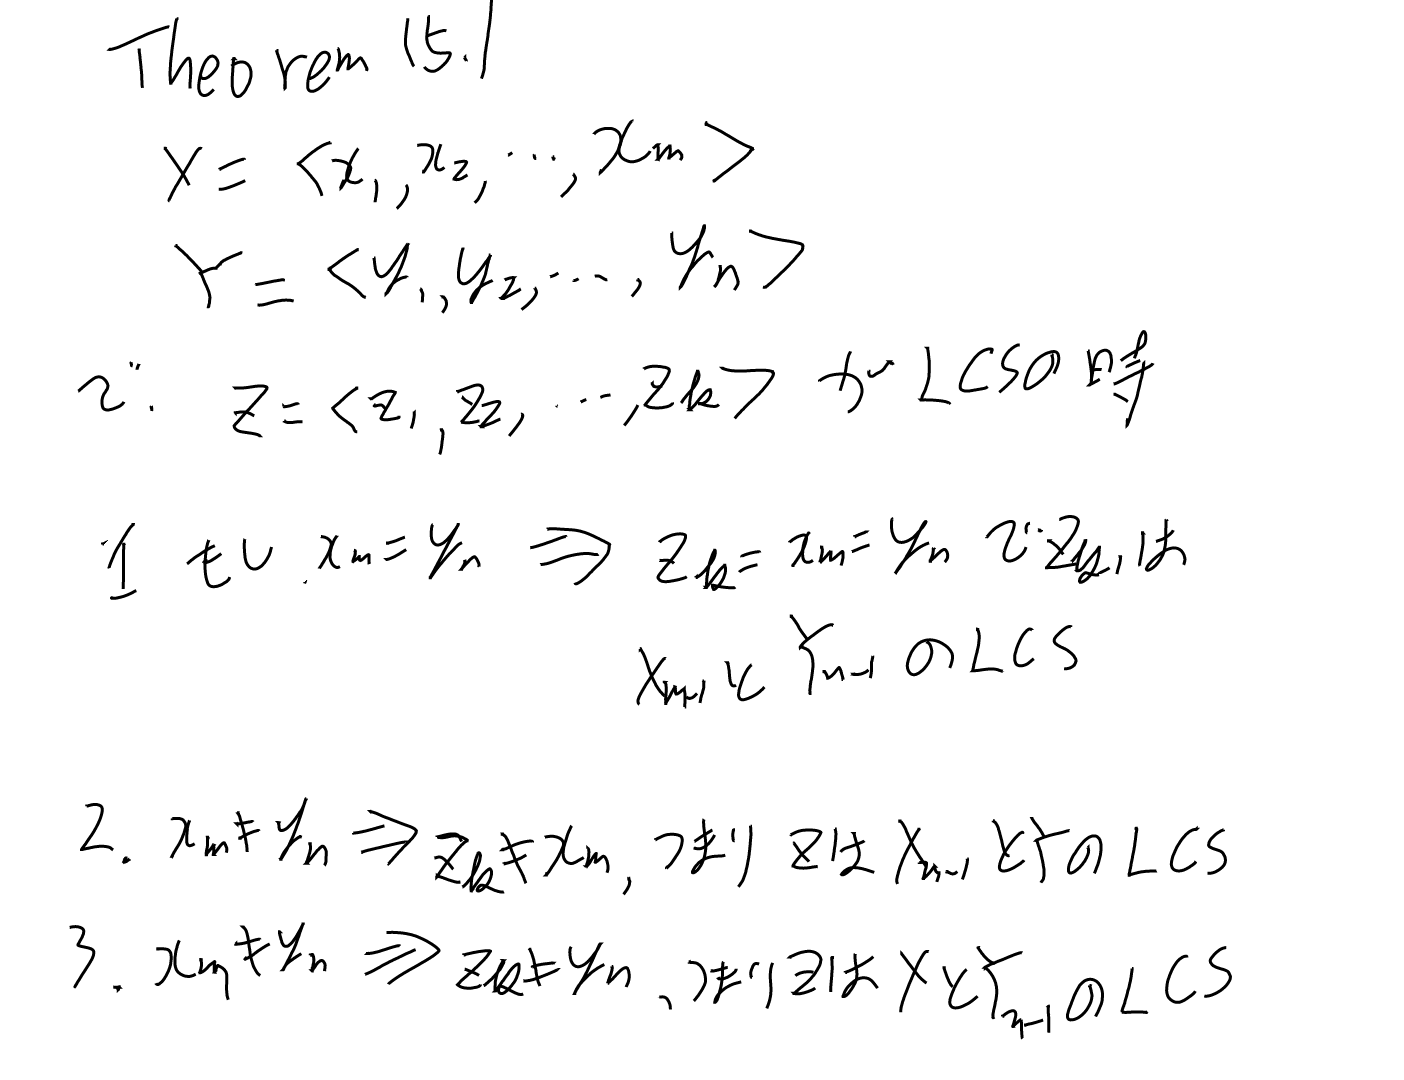 Theorem 15.1
X = <x₁, x₂, ..., xₘ>
Y = <y₁, y₂, ..., yₙ>
で. Z = <z₁, z₂, ..., zₖ> が LCSの時
1 もし xₘ = yₙ ⇒ zₖ = xₘ = yₙ で Zₖ₋₁ は
Xₘ₋₁ と Yₙ₋₁ の LCS
2. xₘ ≠ yₙ ⇒ zₖ ≠ xₘ, つまり Zは Xₘ₋₁ とYの LCS
3. xₘ ≠ yₙ ⇒ zₖ ≠ yₙ、つまり Zは XとYₙ₋₁の LCS